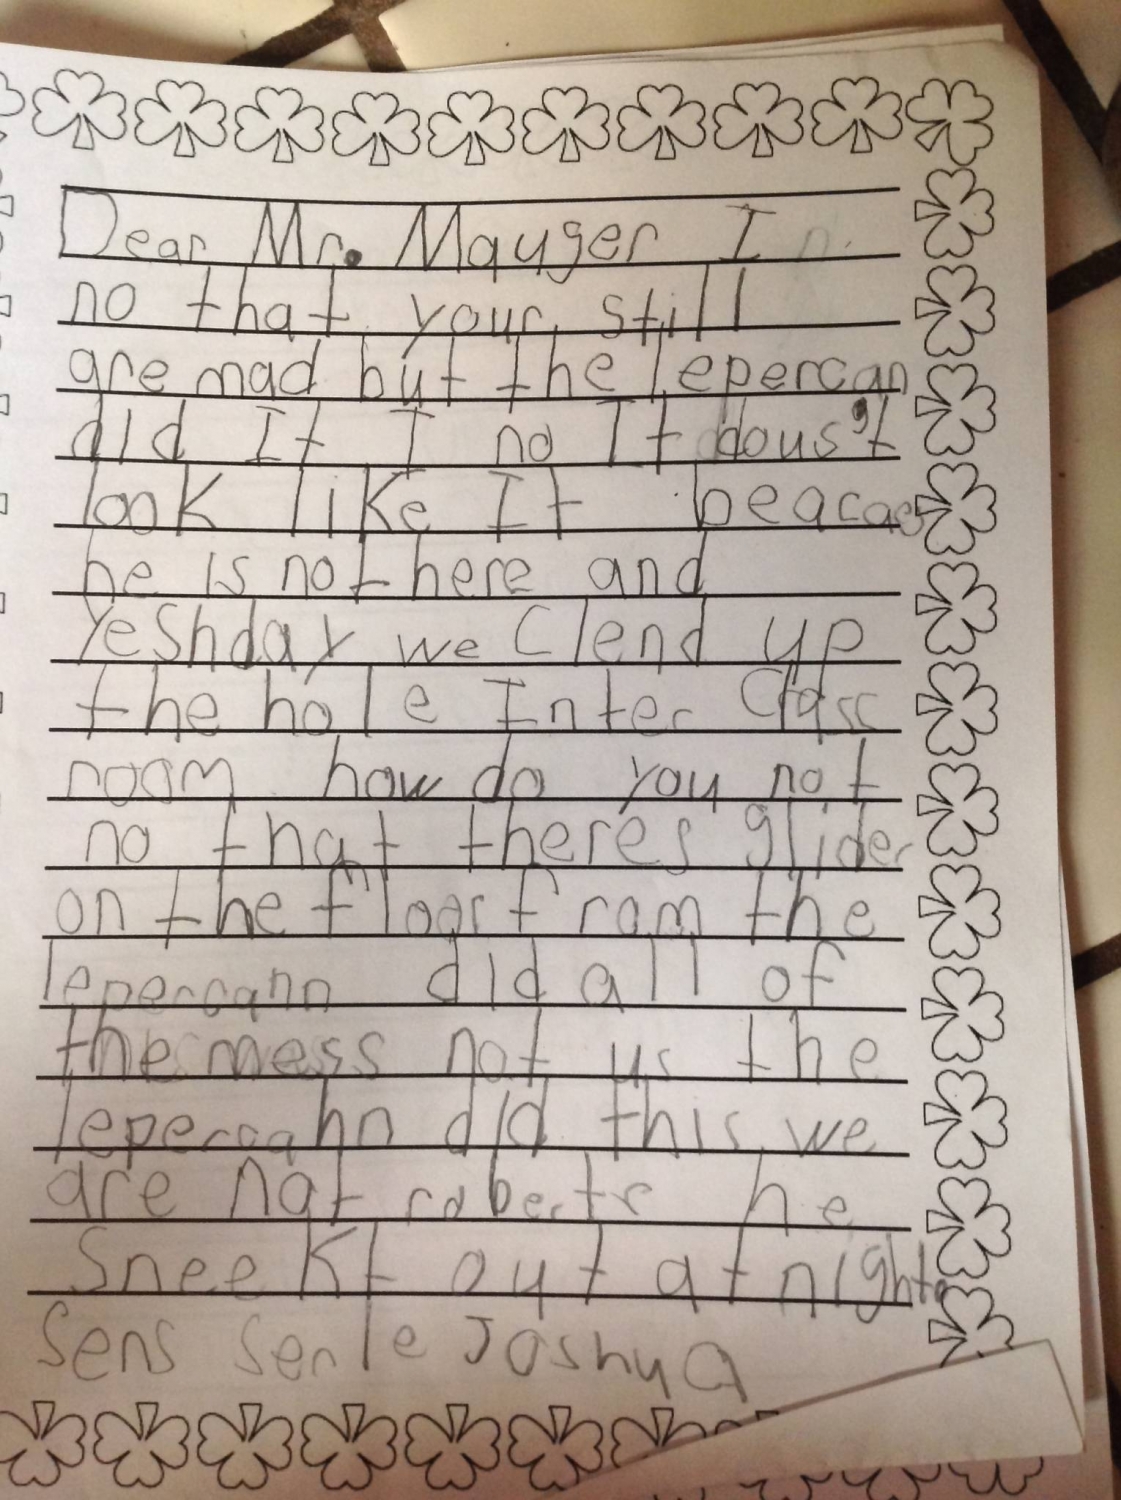 Dear Mr. Mauger I
no that your still
are mad but the lepercan
did It I no It dous't
look like It beacaes
he is not here and
Yeshday we Clend up
the hole Inter Class
room how do you not
no that theres glider
on the floor from the
lepercahn did all of
the mess not us the
lepercahn did this we
are not roberts he
Sneekt out at night.
Sens serle Joshua